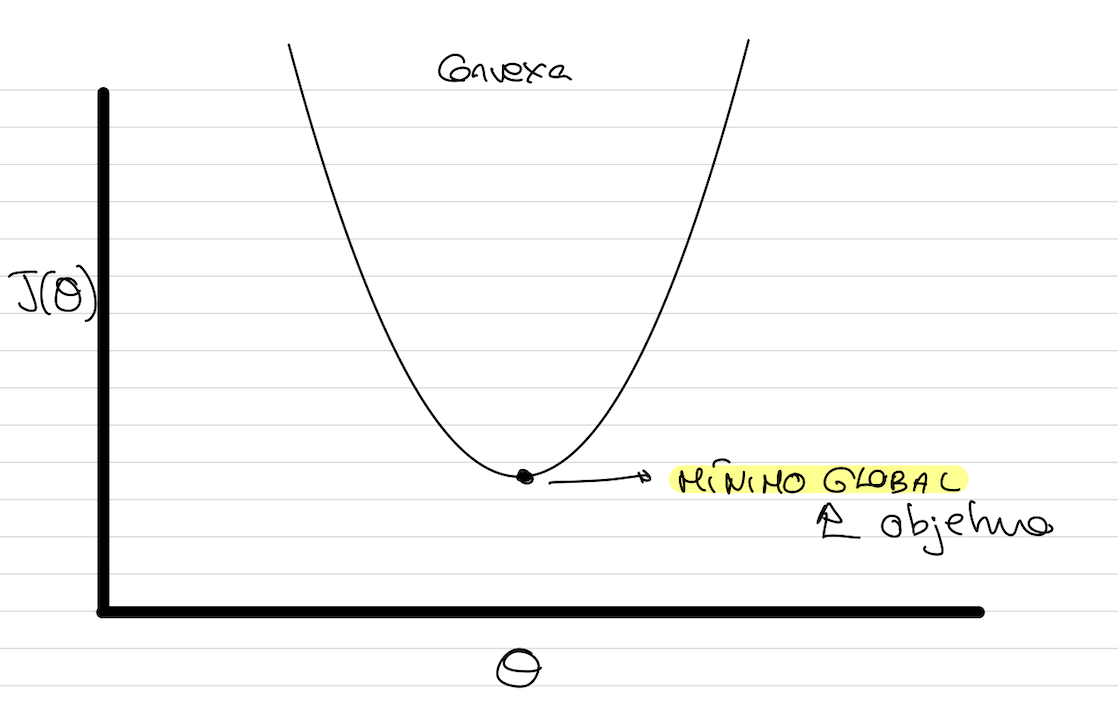 Convexa
J(θ)
MÍNIMO GLOBAL
objetivo
θ